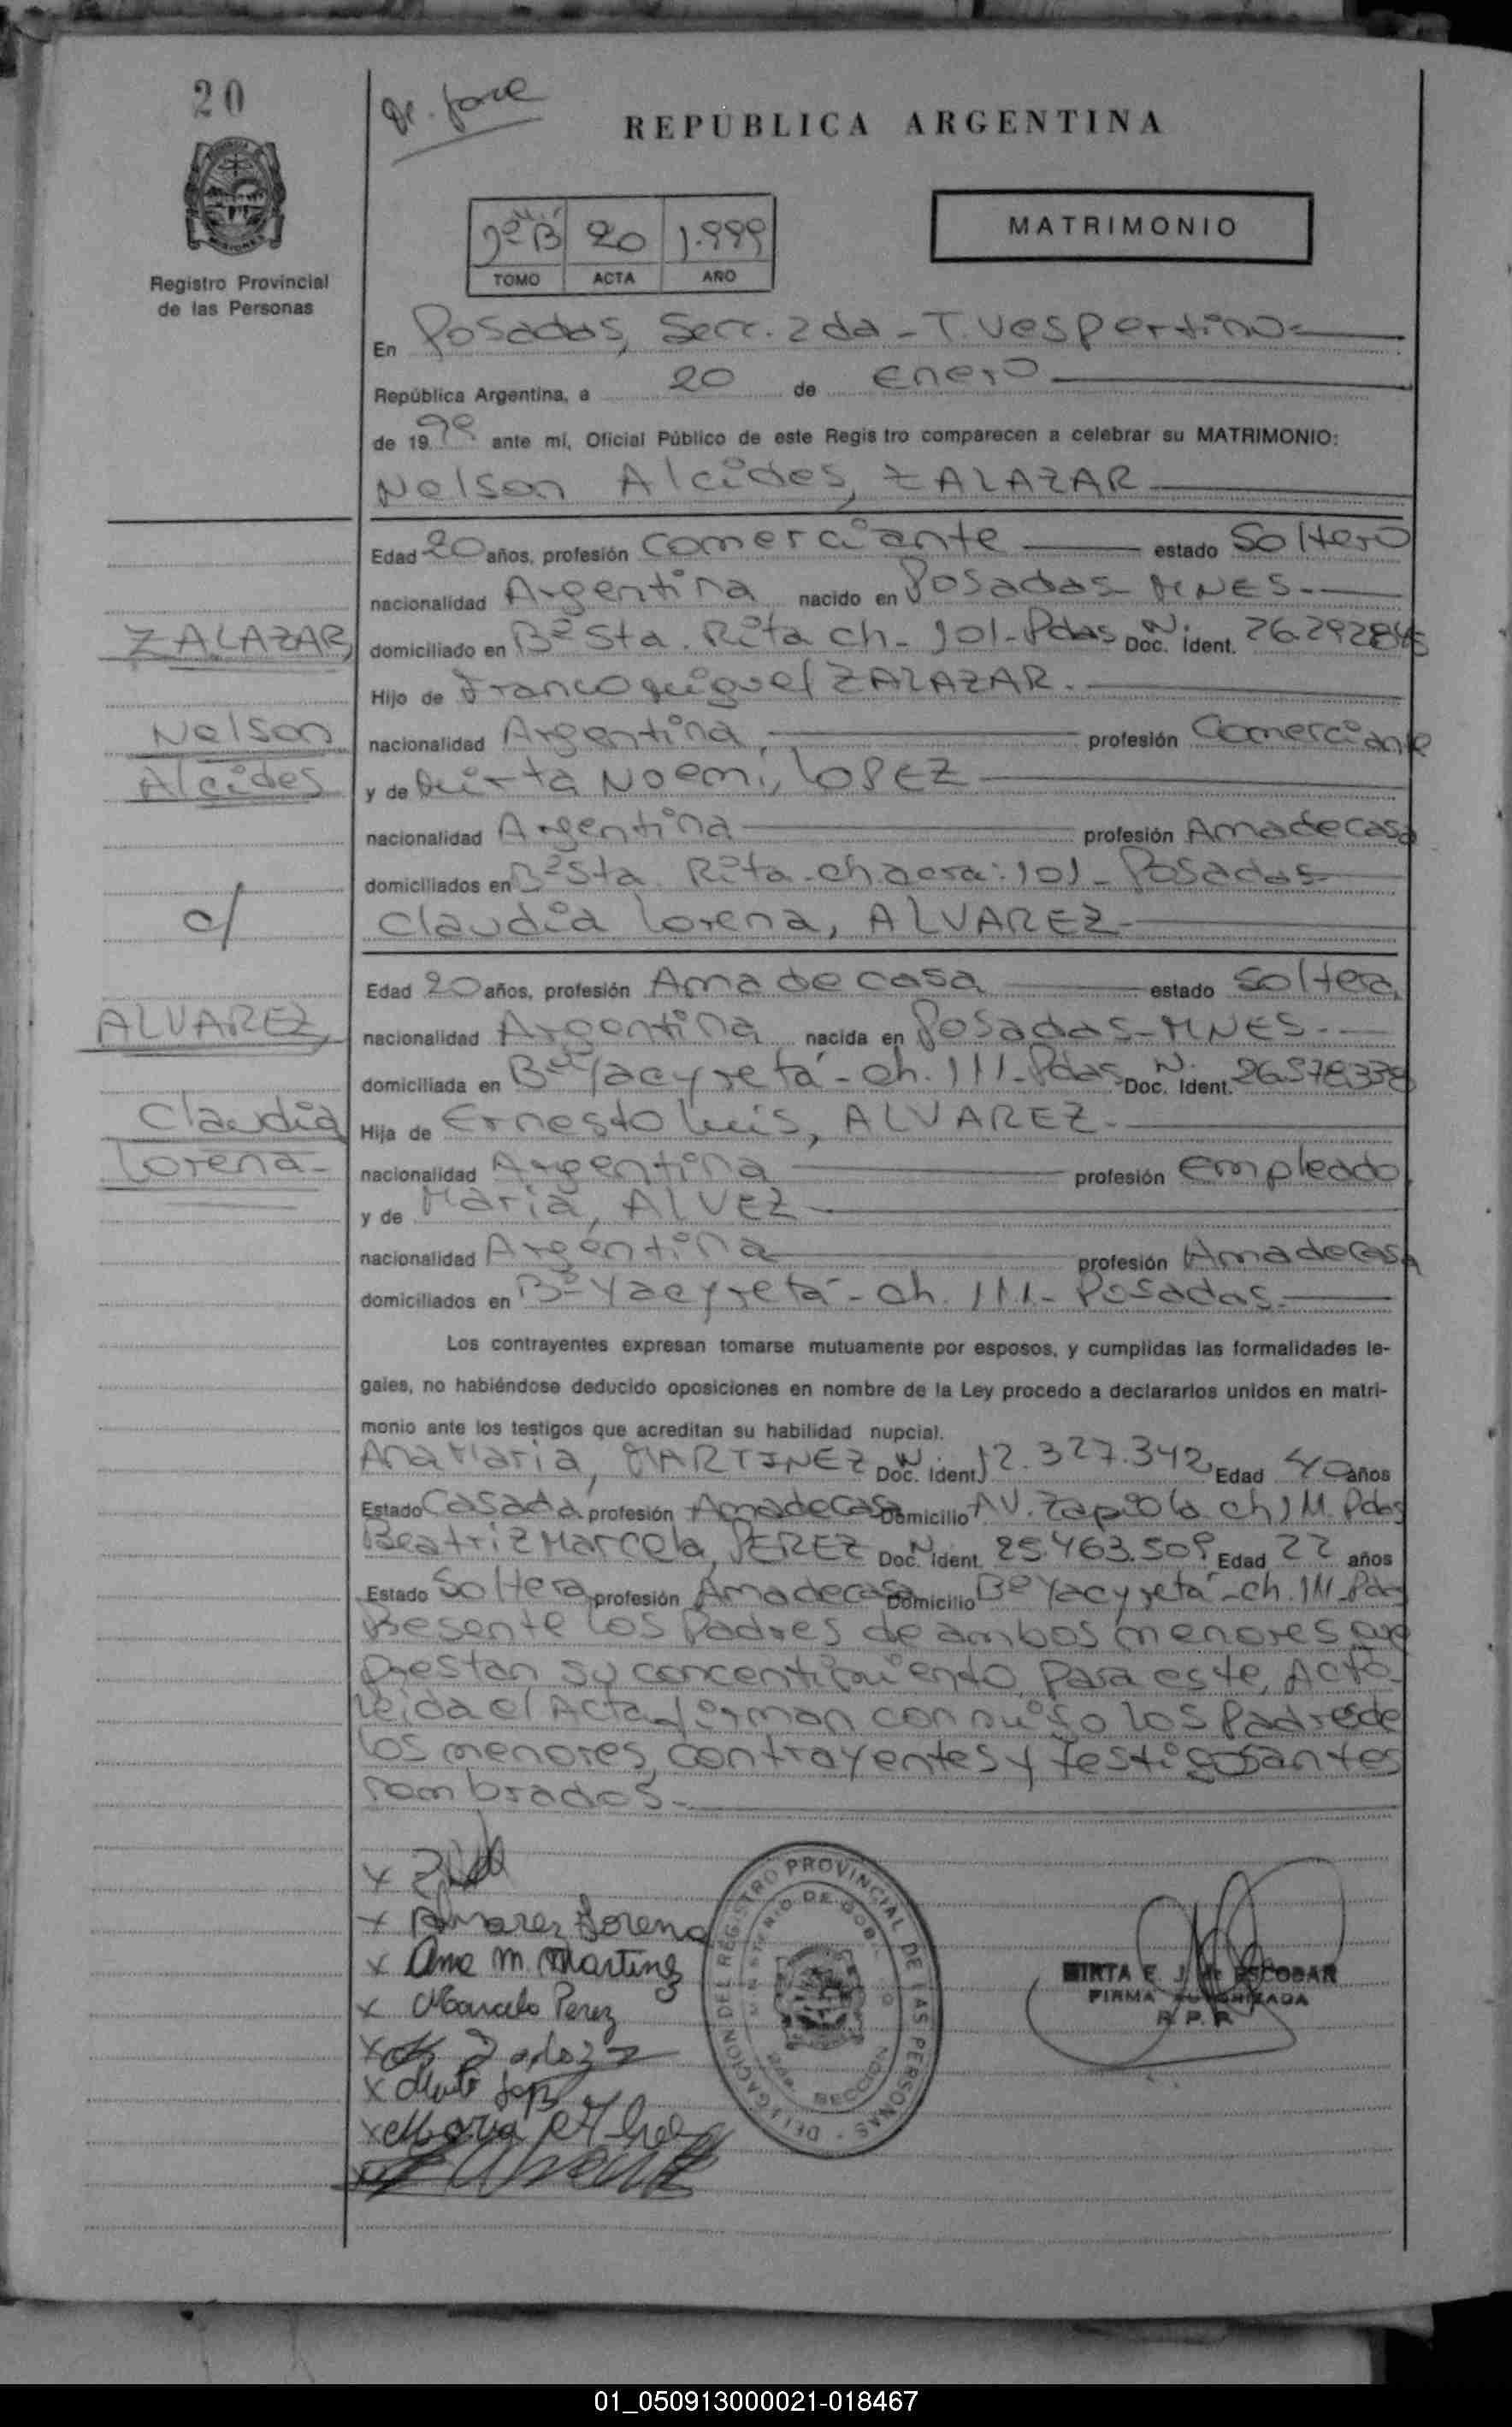 20
REPUBLICA ARGENTINA
20 1.999
TOMO ACTA AÑO
MATRIMONIO
Registro Provincial
de las Personas
En Posadas, Secc. 2da - T. Vespertino
República Argentina, a 20 de Enero
de 1999 ante mí, Oficial Público de este Registro comparecen a celebrar su MATRIMONIO:
Nelson Alcides, ZALAZAR
Edad 20 años, profesión Comerciante estado Soltero
nacionalidad Argentina nacido en Posadas-MNES.-
ZALAZAR,
domiciliado en Bº Sta. Rita ch- 101-Pdas Doc. N. Ident.
Hijo de Franco Miguel ZALAZAR.
Nelson
nacionalidad Argentina, profesión Comerciante
Alcides
y de Mirta Noemi, LOPEZ
nacionalidad Argentina profesión Ama de casa
domiciliados en Bº Sta. Rita-chacra: 101- Posadas
c/
Claudia Lorena, ALVAREZ-
Edad 20 años, profesión Ama de casa estado soltera
ALVAREZ,
nacionalidad Argentina nacida en Posadas-MNES.-
domiciliada en Bº Yacyretá-ch. 111-Pdas Doc. N. Ident. 26.578.338
Claudia
Hija de Ernesto Luis, ALVAREZ-
Lorena-
nacionalidad Argentina profesión Empleado
y de Maria, ALVEZ
nacionalidad Argentina profesión Ama de casa
domiciliados en Bº Yacyretá-ch. 111- Posadas.
Los contrayentes expresan tomarse mutuamente por esposos, y cumplidas las formalidades le-
gales, no habiéndose deducido oposiciones en nombre de la Ley procedo a declararlos unidos en matri-
monio ante los testigos que acreditan su habilidad nupcial.
Ana Maria, MARTINEZ Doc. N. Ident. 12.327.342 Edad 40 años
Estado Casada profesión Ama de Casa Domicilio AV. Zapiola ch Pdas
Beatriz Marcela, PEREZ Doc. N. Ident. 25.463.509 Edad 22 años
Estado Soltera profesión Ama de casa Domicilio Bº Yacyretá-ch. 111-Pdas
Presente los Padres de ambos menores que
Prestan su concentimiento Para este Acto-
Leida el Acta, firman conmigo los Padres de
los menores, contrayentes y testigos antes
nombrados.-
x
x Alvarez Lorena
x Ana M. Martinez
x Marcela Perez
x
x Lopez
x Maria
DELEGACION DEL REGISTRO PROVINCIAL DE LAS PERSONAS
MINISTERIO DE GOBIERNO
SECCION
MIRTA E. J. de ESCOBAR
FIRMA AUTORIZADA
R. P. P.
01_050913000021-018467